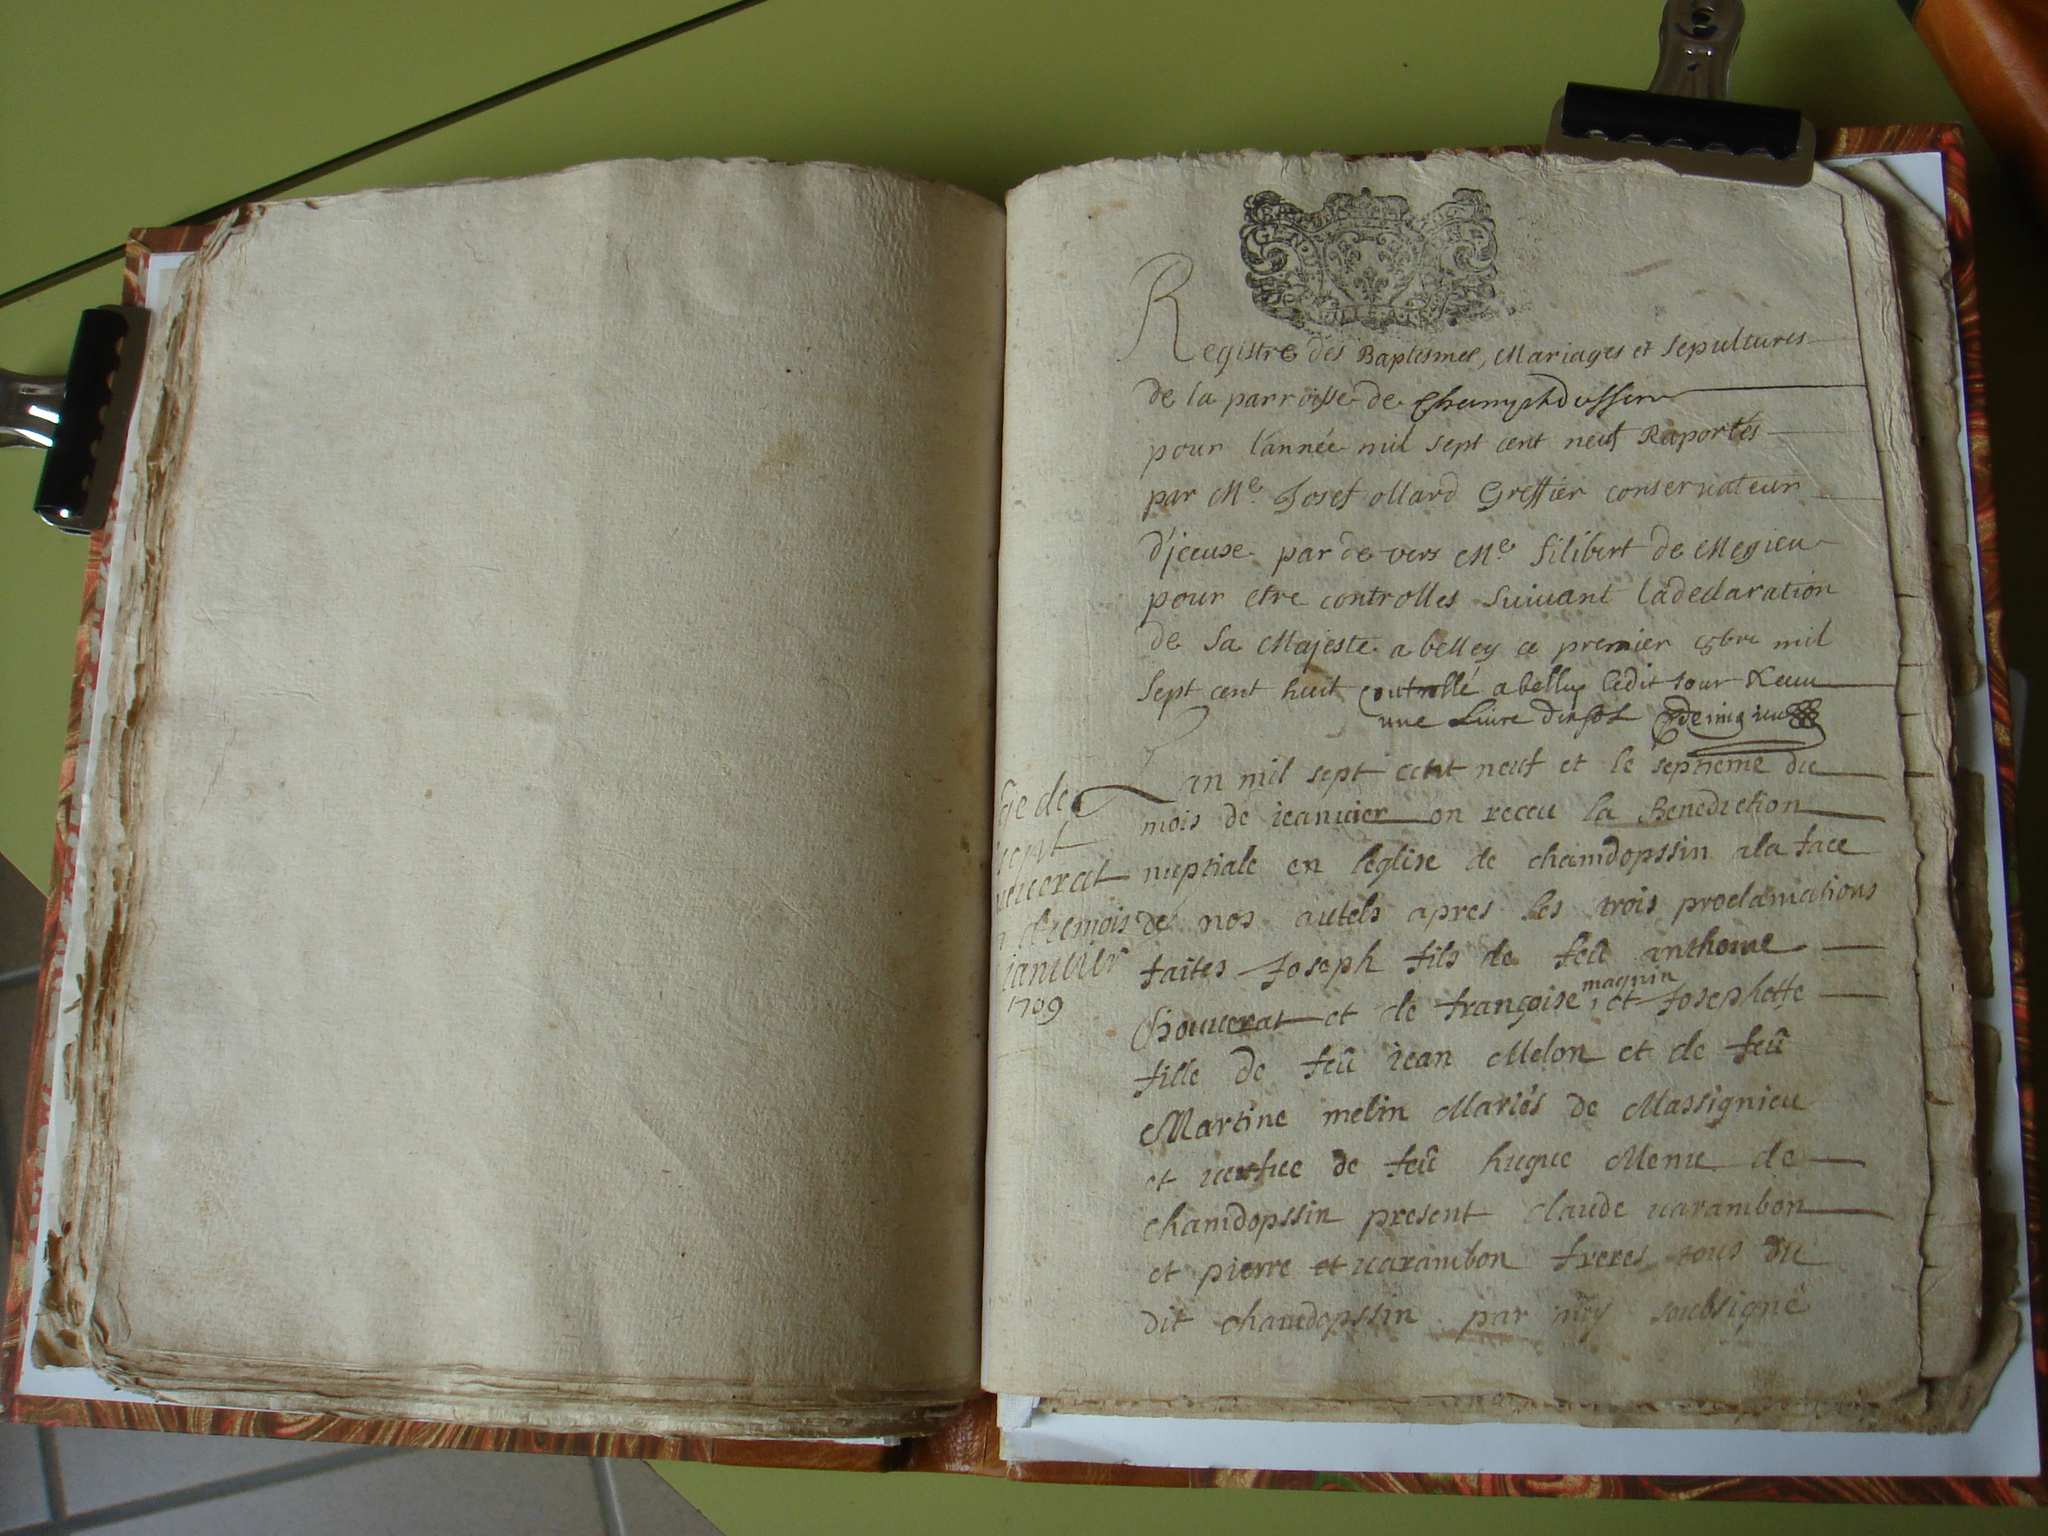 Registre des Baptesmes, Mariages et Sepultures
de la parroisse de
pour l'année mil sept cent neuf Raportés
par Me Josef ollard Greffier conservateur
d'jceuse par de vers Me filibert de Megieu
pour etre controlles suivant la declaration
de Sa Majeste a belley ce premier 9bre mil
Sept cent huit controllé a belley ledit jour
une Livre dix sols
Lan mil sept cent neuf et le septieme du
mois de ieanuier on receu la Benediction
nuptiale en leglise de chamdopssin a la face
de nos autels apres les trois proclamations
faites Joseph fils de feû anthoine
Chouuerat et de françoise magnin et Josephette
fille de feû iean Melon et de feû
Martine melin Mariés de Massignieu
et ueufue de feû hugue de
chamdopssin present claude uarambon
et pierre et uarambon freres tous du
dit chamdopssin par moy soubsigné
de
uerat
du mois
ianuier
1709